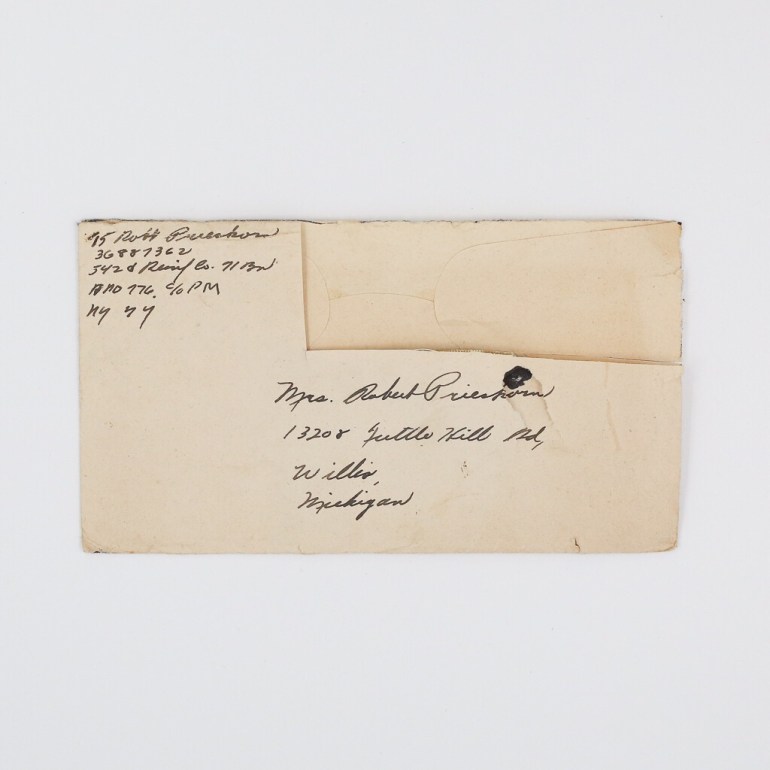 T/5 Robt Prieskorn
36887362
3428 Reinf Co. 71 Bn
APO 776, c/o PM
NY NY
Mrs. Robert Prieskorn
13208 Tuttle Hill Rd,
Willis,
Michigan